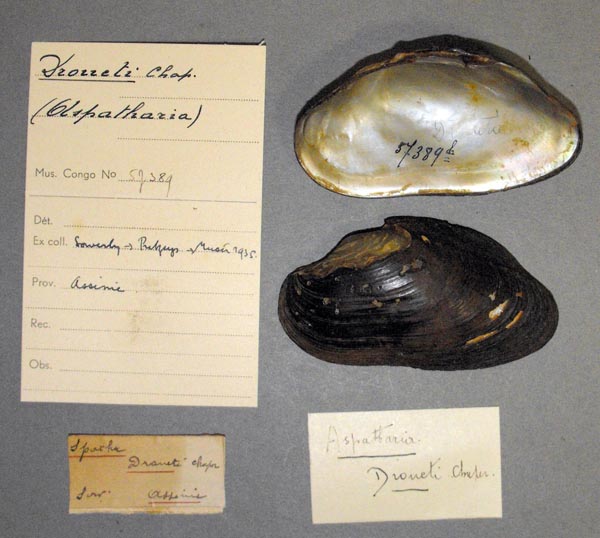 Droueti Chap.
(Aspatharia)
Mus. Congo No 57.389
Dét.
Ex coll. Sowerby → Putzeys → Musée 1935.
Prov. Assinie
Rec.
Obs.
57389
Spatha
Droueti chaper
Sow. Assinie
Aspatharia.
Droueti Chaper.